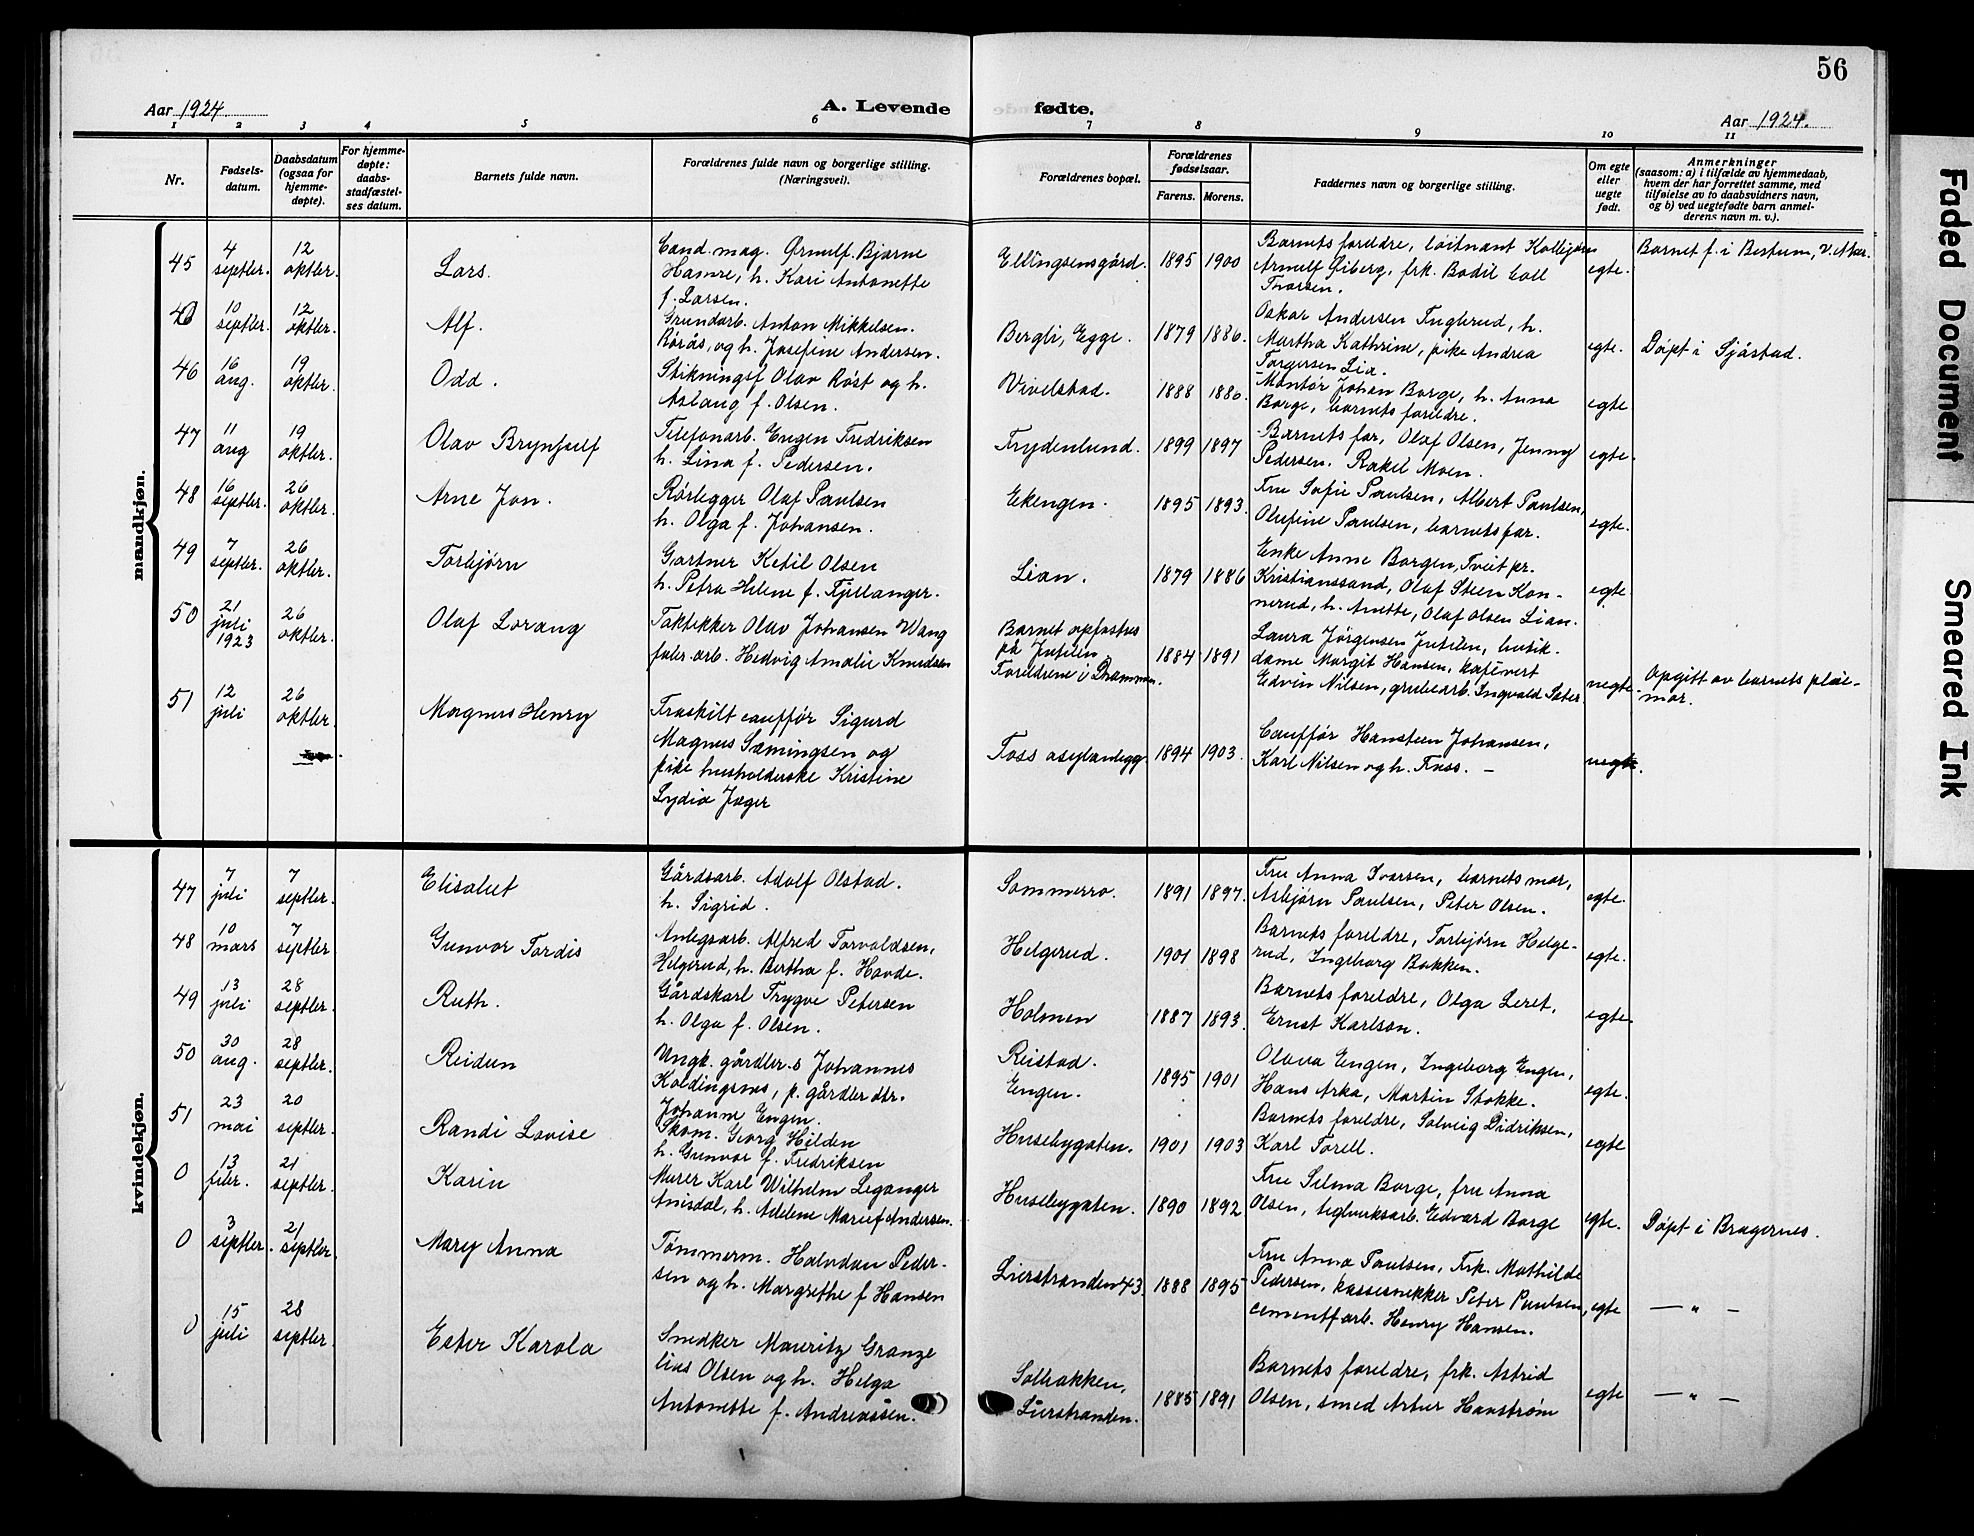 56
Aar 1924.
A. Levende
fødte.
Aar 1924.
1 2 3 4 5 6 7 8 9 10 11
Nr.
Fødsels-
datum.
Daabsdatum
(ogsaa for
hjemme-
døpte).
For hjemme-
døpte:
daabs-
stadfæstel-
ses datum.
Barnets fulde navn.
Forældrenes fulde navn og borgerlige stilling.
(Næringsvei).
Forældrenes bopæl.
Forældrenes
fødselsaar.
Farens. Morens.
Faddernes navn og borgerlige stilling.
Om egte
eller
uegte
født.
Anmerkninger
(saasom: a) i tilfælde av hjemmedaab,
hvem der har forrettet samme, med
tilføielse av to daabsvidners navn,
og b) ved uegtefødte barn anmel-
derens navn m. v.).
mandkjøn.
45
4
septbr.
12
oktbr.
Lars.
Cand. mag. Ørnulf Bjarne
Hamre, h. Kari Antonette
f. Larsen.
Ellingsensgård. 1895 1900
Barnets foreldre, løitnant
Arnulf Øiberg, frk. Bodil Coll
Thorsen.
egte.
Barnet f. i Bestum, V. Aker.
10
septbr.
12
oktbr.
Alf.
Grundarb. Anton Mikkelsen
Borås, og h. Josefine Andersen.
Bergli, Egge. 1879 1886.
Oskar Andersen Fuglerud, h.
Martha Kathrine, pike Andrea
Torgersen Lia.
egte.
Døpt i Sjåstad.
46
16
aug.
19
oktbr.
Odd.
Stikningsf Olav Røst og h.
Aslaug f. Olsen.
Vivelstad. 1888 1880.
Montør Johan Borge, h. Anna
Borge, barnets foreldre.
egte
47
11
aug
19
oktbr.
Olav Brynhjulf
Telefonarb. Engen Fredriksen
h. Lina f. Pedersen.
Frydenlund. 1899 1897
Barnets far, Olaf Olsen, Jenny
Pedersen. Rakel Moen.
egte.
48
16
septbr.
26
oktbr.
Arne Jon.
Rørlegger Olaf Paulsen
h. Olga f. Johansen.
Ekengen. 1895 1893.
Fru Sofie Paulsen, Albert Paulsen,
Olufine Paulsen, barnets far.
egte.
49
7
septbr.
26
oktbr.
Torbjørn
Gartner Ketil Olsen
h. Petra Helene f. Fjellanger.
Lian. 1879 1886
Enke Anne Borgen, Tveit pr.
Kristianssand, Olaf Steen Kon-
nerud, h. Anette, Olaf Olsen Lian.
egte
50
21
juli
1923
26
oktbr.
Olaf Lorang
Taktekker Olav Johansen Wang
fabr. arb. Hedvig Amalie Knudsen
Barnet opfostres
på Jutilen.
Foreldrene i Drammen. 1884 1891
Laura Jørgensen Jutilen, butik-
dame Margit Hansen, kafévert
Edvin Nilsen, grubearb. Ingvald Sæter
uegte.
Opgitt av barnets pleie-
mor.
51
12
juli
26
oktbr.
Magnus Henry
Fraskilt cauffør Sigurd
Magnus Sæmingsen og
pike husholderske Kristine
Lydia Jæger
Foss asylanlegg 1894 1903.
Cauffør Hansteen Johansen,
Karl Nilsen og h. Foss. —
uegte.
kvindekjøn.
47
7
juli
7
septbr.
Elisabet
Gårdsarb. Adolf Olstad.
h. Sigrid.
Sommerro. 1891 1897.
Fru Anna Ivarsen, barnets mor,
Asbjørn Paulsen, Peter Olsen.
egte.
48
10
mars
7
septbr.
Gunvor Tordis
Anlegsarb. Alfred Torvaldsen,
Helgerud, h. Bertha f. Hovde.
Helgerud. 1901 1898
Barnets foreldre, Torbjørn Helge-
rud, Ingeborg Bakken.
egte.
49
13
juli
28
septbr.
Ruth.
Gårdskarl Trygve Petersen
h. Olga f. Olsen.
Holmen 1887 1893.
Barnets foreldre, Olga Leret,
Ernst Karlson.
egte.
50
30
aug.
28
septbr.
Reidun
Ungk. gårdbr. s Johannes
Koldingsnes, p. gårdbr dtr.
Johanne Engen.
Reistad.
Engen. 1895 1901
Olava Engen, Ingeborg Engen,
Hans Arka, Martin Stokke.
egte.
51
23
mai
20
septbr.
Randi Lovise
Skom. Georg Hilden
h. Gunvor f. Fredriksen
Husebygaten. 1901 1903
Barnets foreldre, Solveig Didriksen,
Karl Torell.
egte
0
13
febr.
21
septbr.
Karin
Murer Karl Wilhelm Leganger
Amsdal, h. Adelene Marie f Andersen.
Husebygaten. 1890 1892
Fru Selma Borge, fru Anna
Olsen, teglverksarb. Edvard Borge
egte.
Døpt i Bragernes.
0
3
septbr.
21
septbr.
Mary Anna
Tømmerm. Halvdan Peder-
sen og h. Margrethe f Hansen
Lierstranden 43. 1888 1895
Fru Anna Paulsen, Frk. Mathilde
Pedersen, kassesnekker Peter Paulsen,
cementfarb. Henry Hansen.
egte
— " —
0
15
juli
28
septbr.
Ester Karola
Snedker Mauritz Granze
lius Olsen og h. Helga
Antonette f. Andreassen.
Solbakken,
Lierstranden. 1885 1891
Barnets foreldre, frk. Astrid
Olsen, smed Artur Hanstrøm
egte
— " —
Faded Document
Smeared Ink